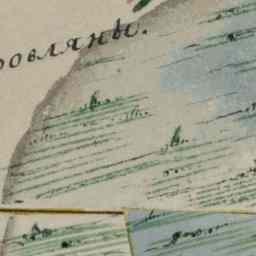 ровляны.